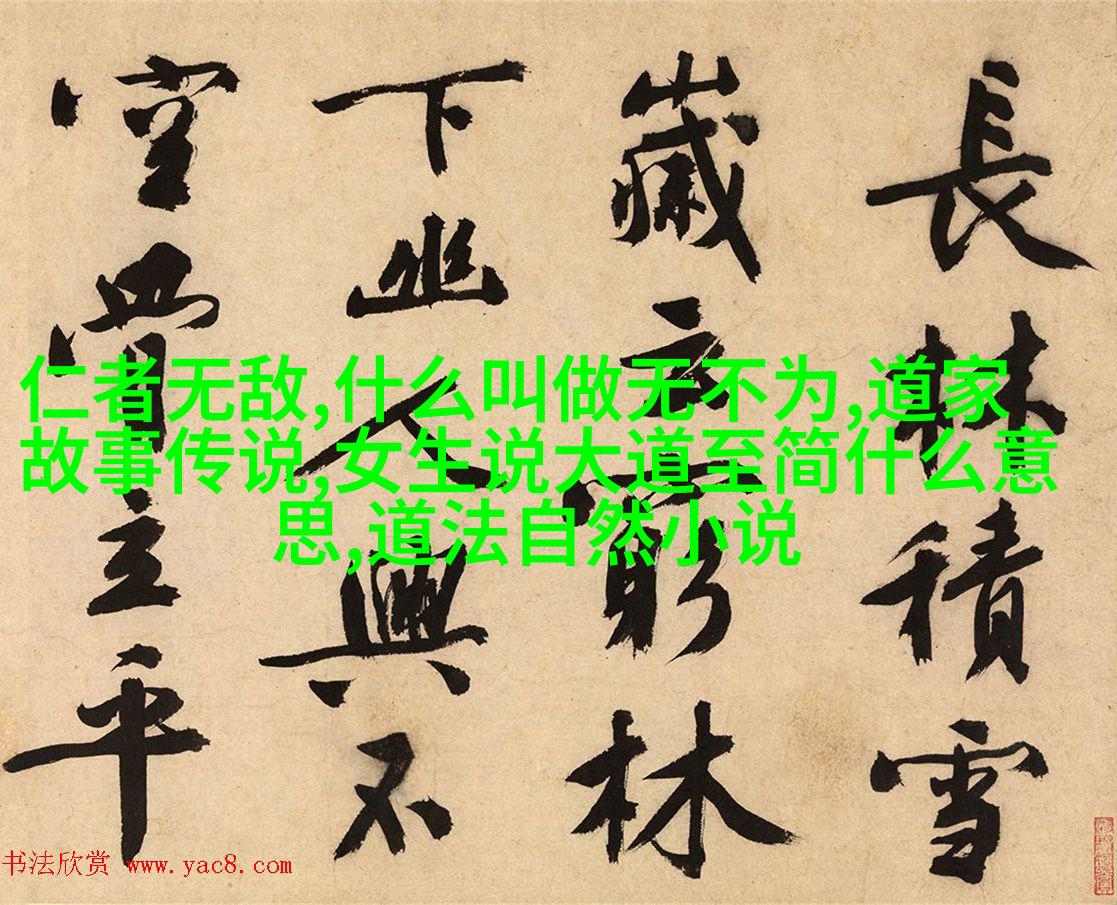 長林積雪
歲云窮林
下幽人興不
空骨立平
仁者无敌,什么叫做无不为,道家
故事传说,女生说大道至简什么意
思,道法自然小说
书法欣赏 www.yac8.com